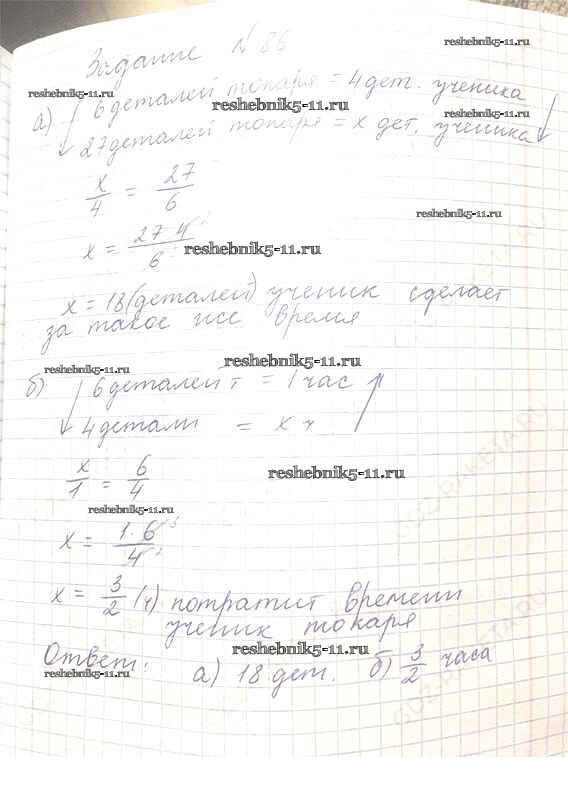 Задание N 86
reshebnik5-11.ru
reshebnik5-11.ru
а) 6 деталей токаря = 4 дет. ученика
reshebnik5-11.ru
reshebnik5-11.ru
27 деталей токаря = x дет. ученика
reshebnik5-11.ru
x/4 = 27/6
reshebnik5-11.ru
x = 27·4/6
reshebnik5-11.ru
x = 18 (деталей) ученик сделает
за такое же время
reshebnik5-11.ru
reshebnik5-11.ru
б) 6 деталей т = 1 час
4 детали = x ч
x/1 = 6/4
reshebnik5-11.ru
reshebnik5-11.ru
x = 1·6/4
x = 3/2 (ч) потратит времени
ученик токаря
reshebnik5-11.ru
Ответ: а) 18 дет. б) 3/2 часа
reshebnik5-11.ru
GDZ-RAKETA.RU